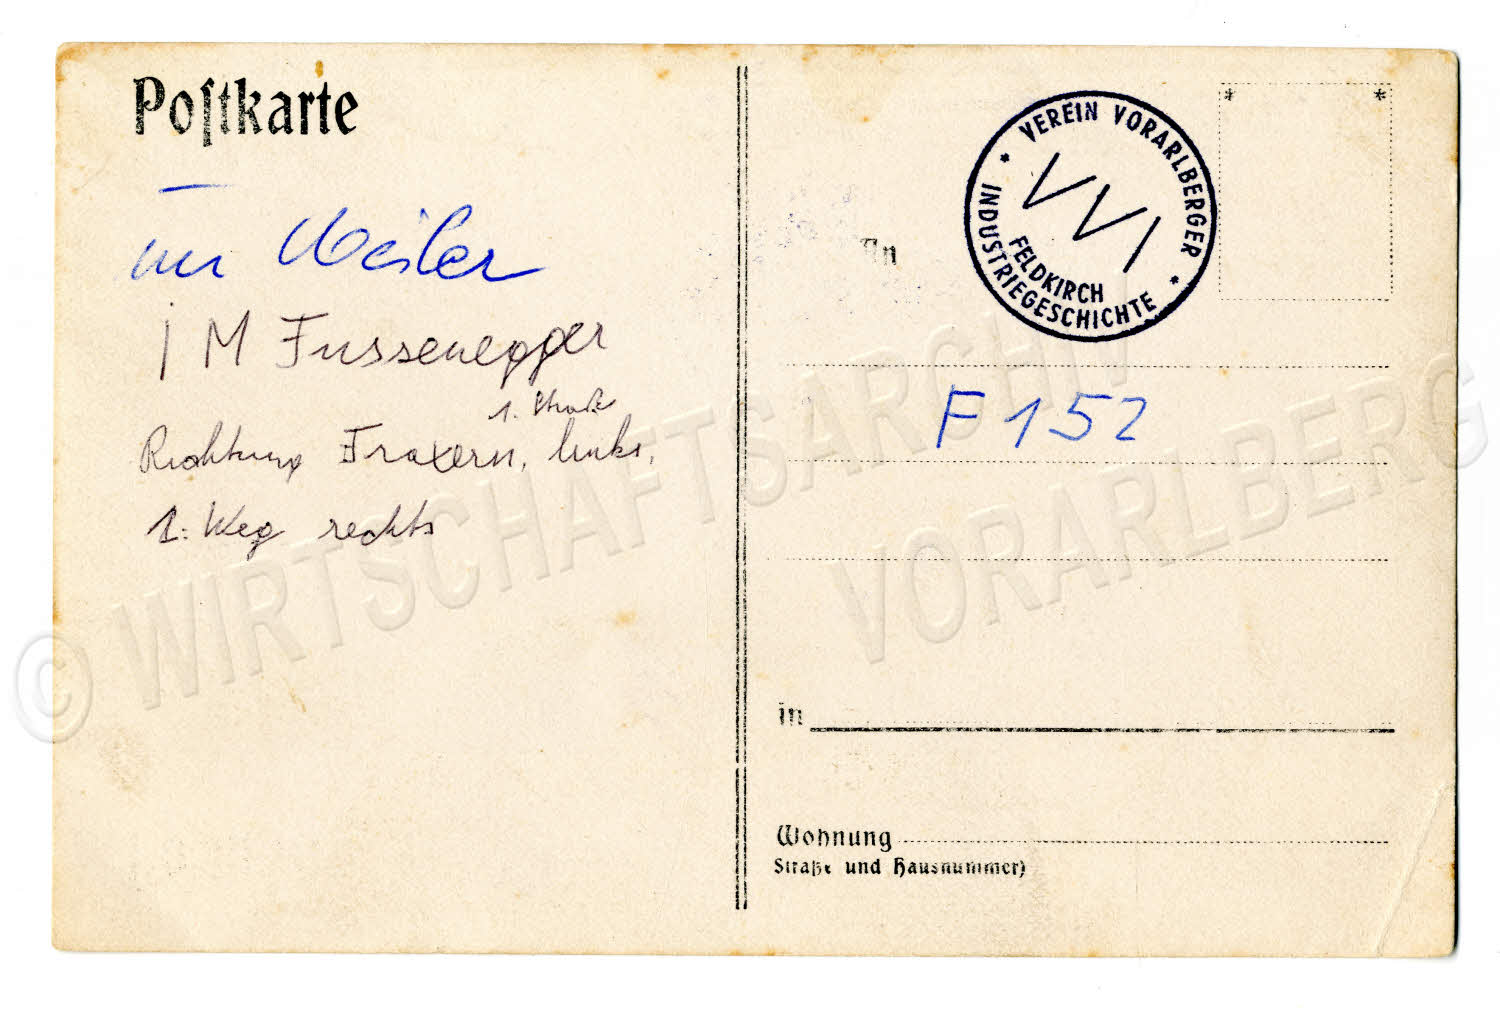 Poſtkarte
in Weiler
J M Fussenegger
1. Straße
Richtung Fraxern, links,
1. Weg rechts
* VEREIN VORARLBERGER *
INDUSTRIEGESCHICHTE
VVI
FELDKIRCH
An
F 152
in
Wohnung
Straße und Hausnummer)
© WIRTSCHAFTSARCHIV
VORARLBERG